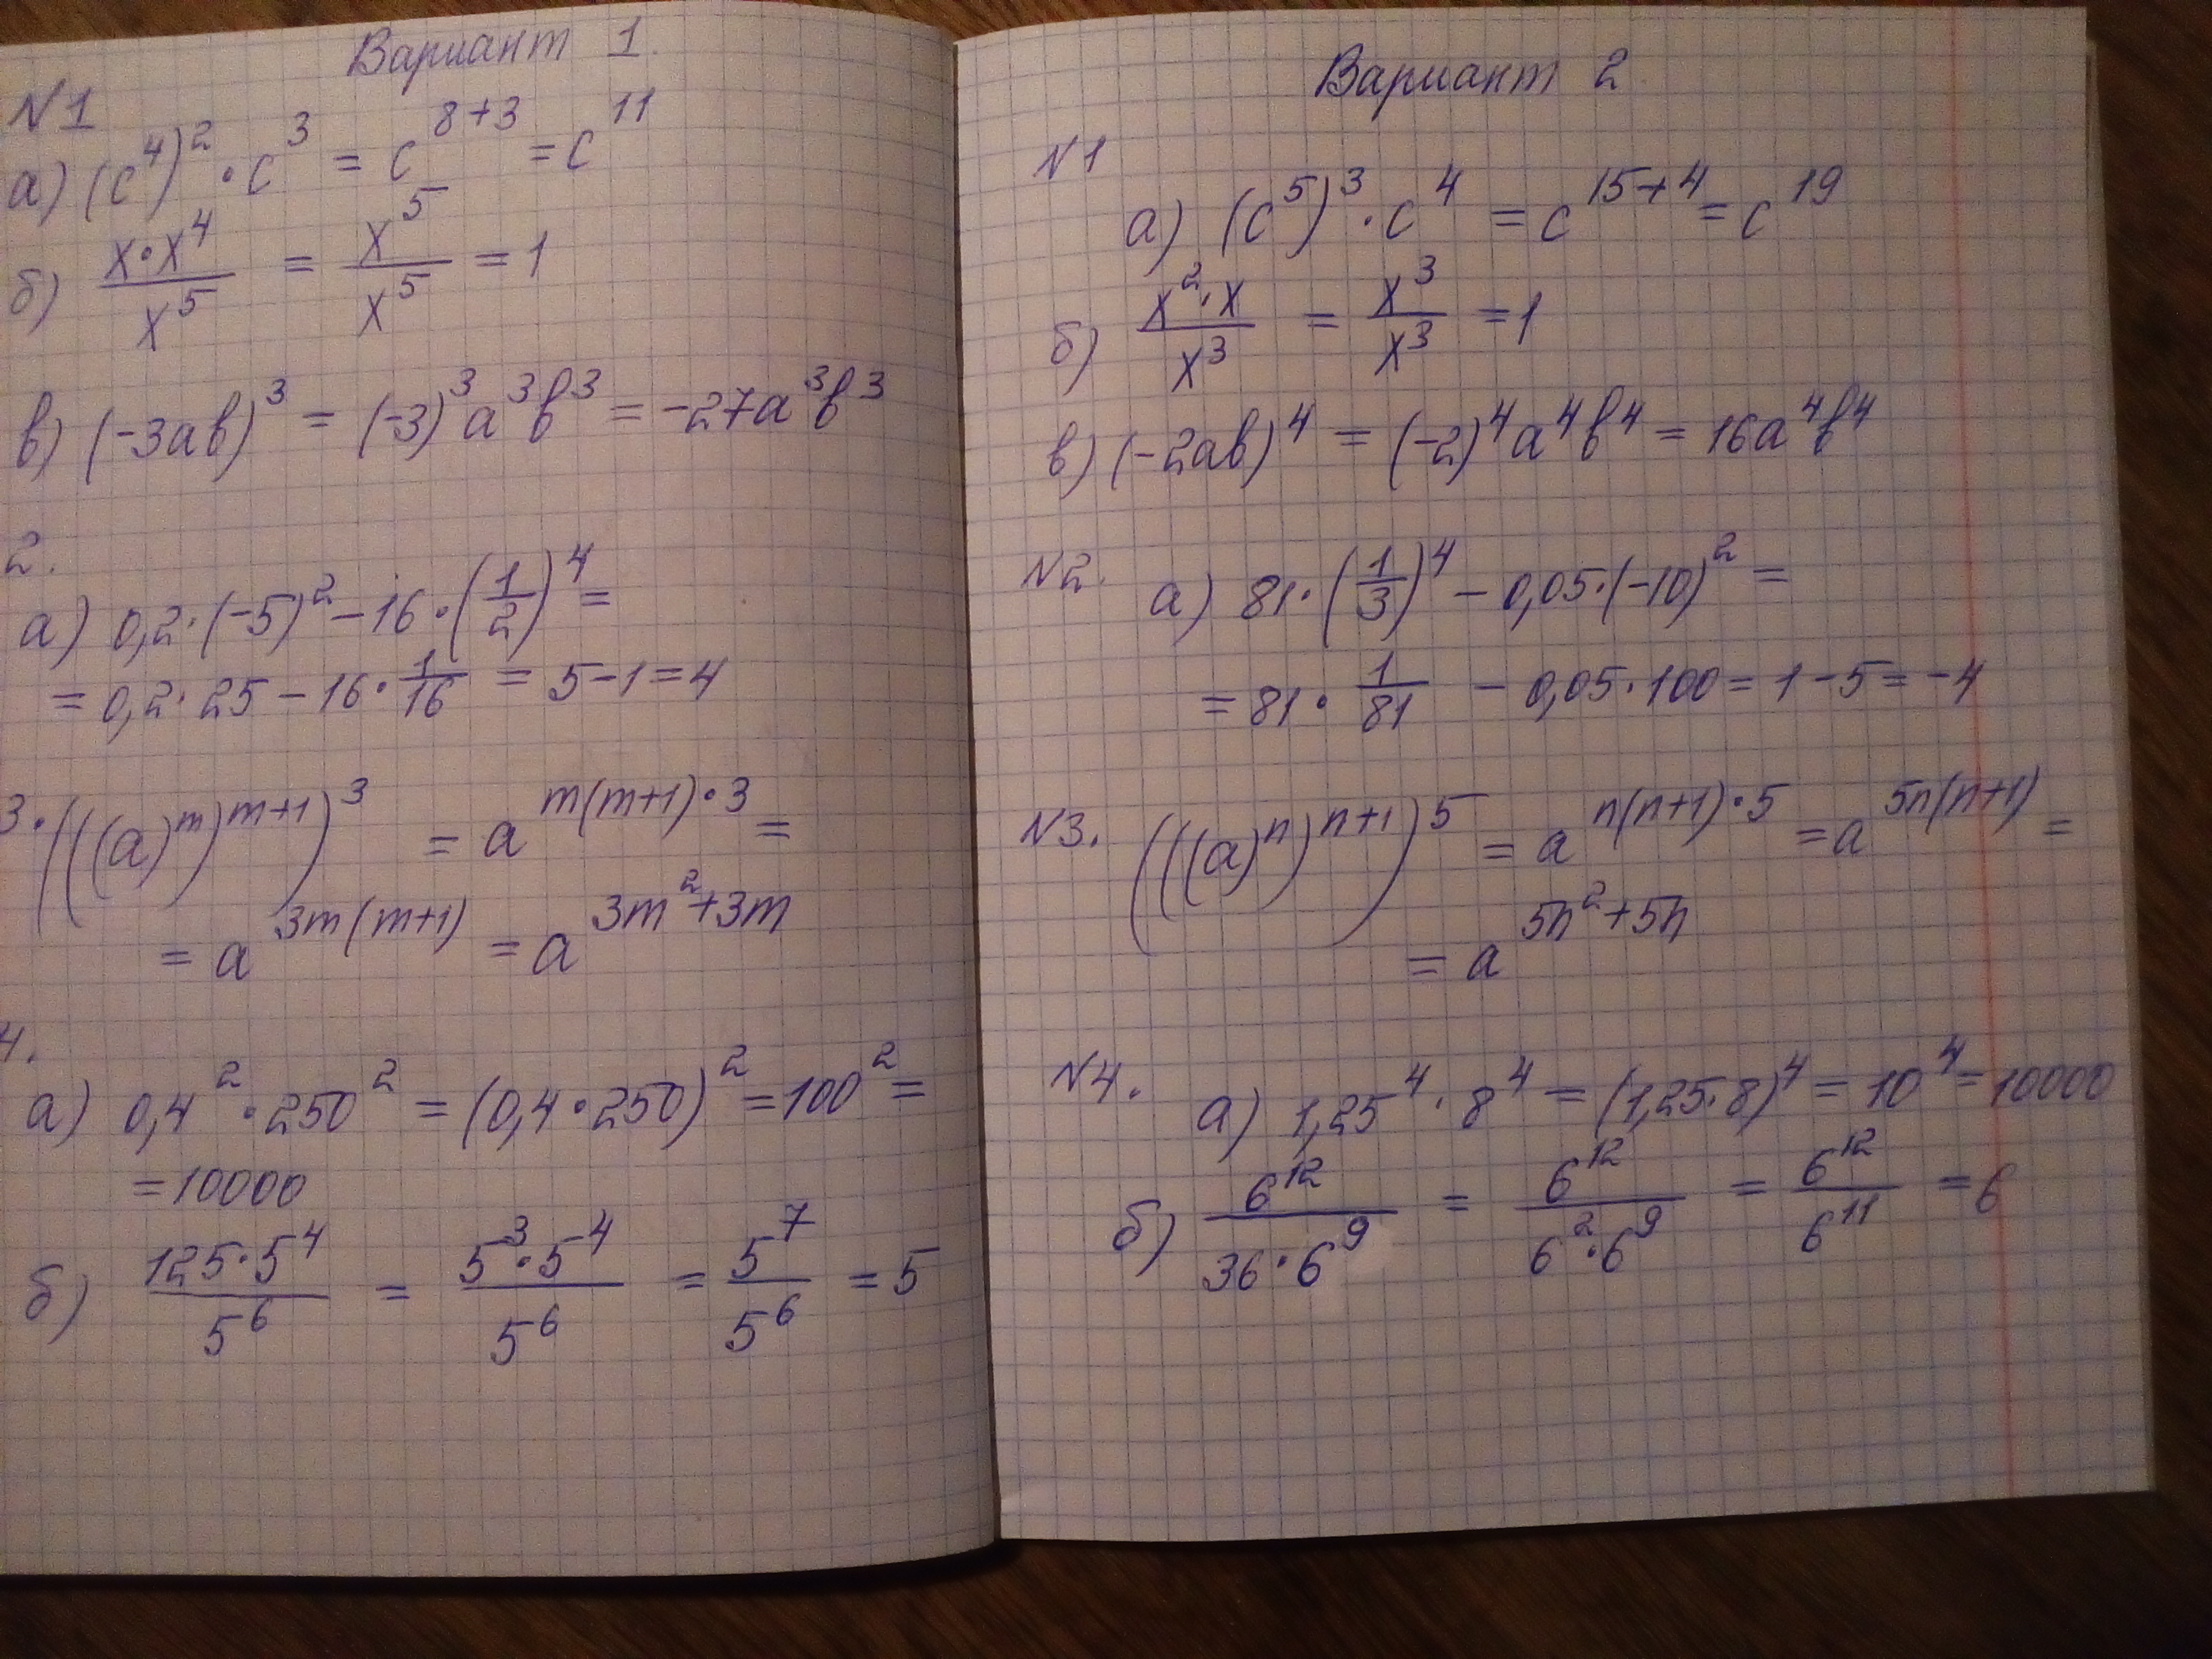 Вариант 1.
№1
а) (c⁴)² · c³ = c⁸⁺³ = c¹¹
б) x·x⁴/x⁵ = x⁵/x⁵ = 1
в) (-3ab)³ = (-3)³a³b³ = -27a³b³
2.
а) 0,2·(-5)² - 16·(1/2)⁴ =
= 0,2·25 - 16·1/16 = 5-1=4
3. (((a)^m)^(m+1))³ = a^(m(m+1)·3) =
= a^(3m(m+1)) = a^(3m²+3m)
4.
а) 0,4² · 250² = (0,4·250)² = 100² =
= 10000
б) 125·5⁴/5⁶ = 5³·5⁴/5⁶ = 5⁷/5⁶ = 5
Вариант 2.
№1
а) (c⁵)³ · c⁴ = c¹⁵⁺⁴ = c¹⁹
б) x²·x/x³ = x³/x³ = 1
в) (-2ab)⁴ = (-2)⁴a⁴b⁴ = 16a⁴b⁴
№2. а) 81·(1/3)⁴ - 0,05·(-10)² =
= 81·1/81 - 0,05·100 = 1-5 = -4
№3. (((a)^n)^(n+1))⁵ = a^(n(n+1)·5) = a^(5n(n+1)) =
= a^(5n²+5n)
№4. а) 1,25⁴ · 8⁴ = (1,25·8)⁴ = 10⁴ = 10000
б) 6¹²/36·6⁹ = 6¹²/6²·6⁹ = 6¹²/6¹¹ = 6